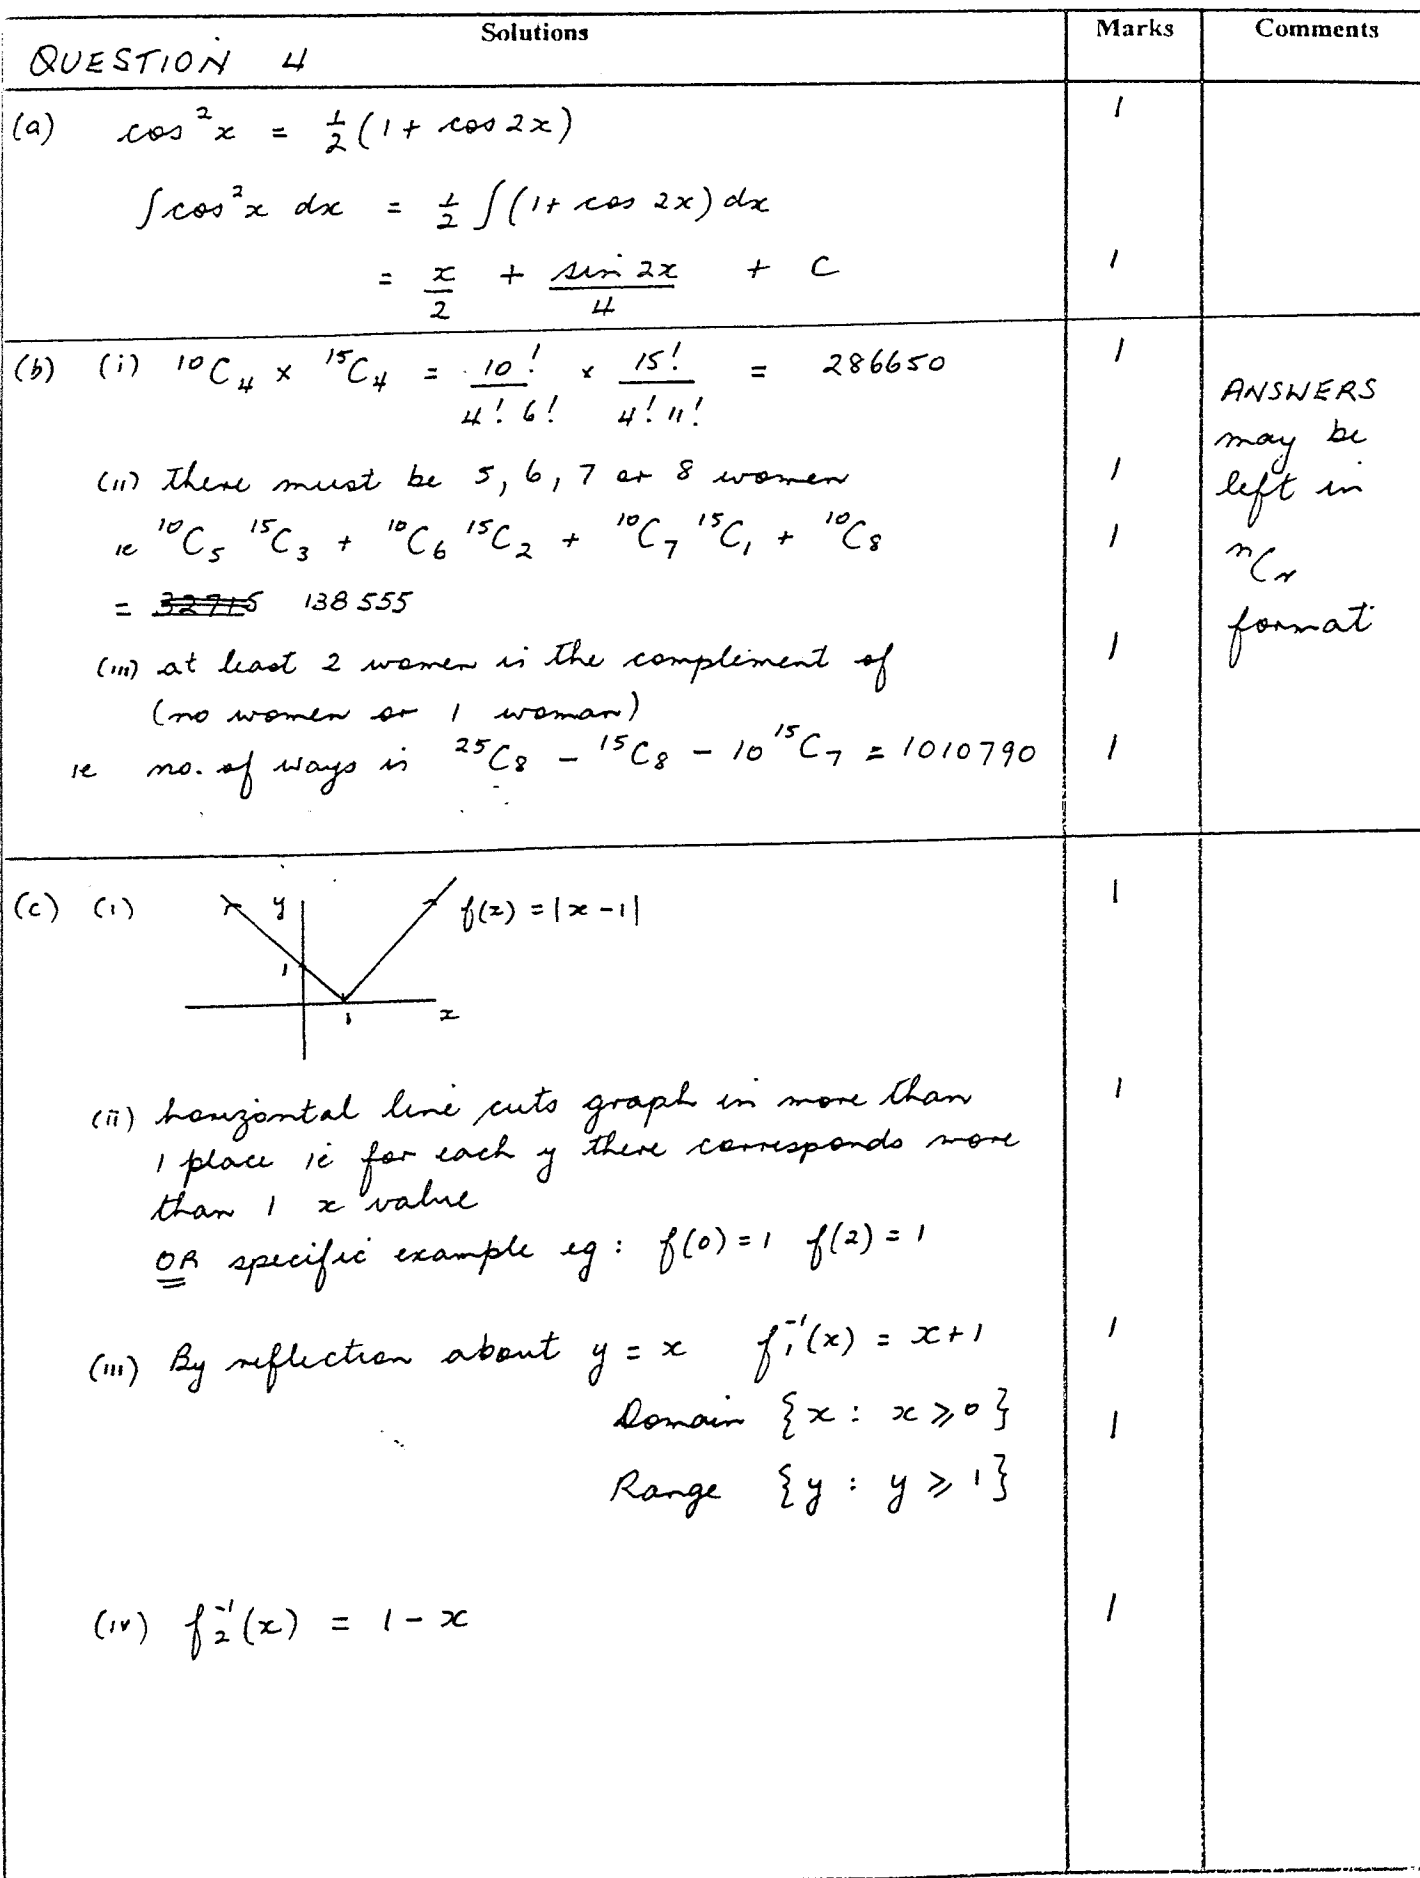 Solutions Marks Comments
QUESTION 4
(a) cos²x = ½(1 + cos 2x) 1
∫cos²x dx = ½ ∫(1 + cos 2x) dx
= x/2 + sin 2x/4 + C 1
(b) (i) ¹⁰C₄ × ¹⁵C₄ = 10!/4! 6! × 15!/4! 11! = 286650 1
ANSWERS
may be
left in
ⁿCᵣ
format
(ii) there must be 5, 6, 7 or 8 women 1
ie ¹⁰C₅ ¹⁵C₃ + ¹⁰C₆ ¹⁵C₂ + ¹⁰C₇ ¹⁵C₁ + ¹⁰C₈ 1
= 32715 138555
(iii) at least 2 women is the compliment of 1
(no women or 1 woman)
ie no. of ways is ²⁵C₈ − ¹⁵C₈ − 10 ¹⁵C₇ = 1010790 1
(c) (i) y f(x) = |x − 1| 1
1
1 x
(ii) horizontal line cuts graph in more than 1
1 place ie for each y there corresponds more
than 1 x value
OR specific example eg : f(0) = 1 f(2) = 1
(iii) By reflection about y = x f₁⁻¹(x) = x + 1 1
Domain {x : x ⩾ 0} 1
Range {y : y ⩾ 1}
(iv) f₂⁻¹(x) = 1 − x 1